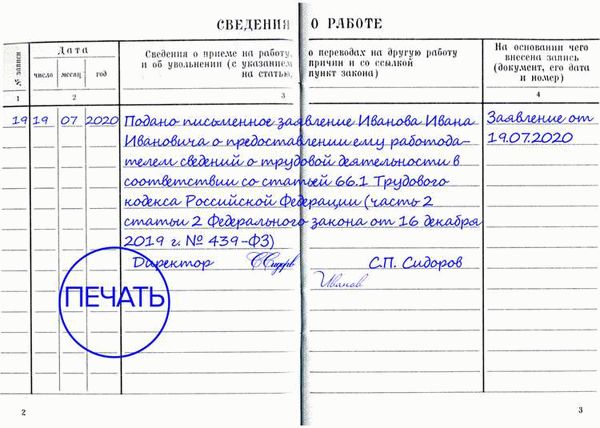 СВЕДЕНИЯ О РАБОТЕ
№ записи
Дата
число
месяц
год
Сведения о приеме на работу, о переводах на другую работу
и об увольнении (с указанием причин и со ссылкой
на статью, пункт закона)
На основании чего
внесена запись
(документ, его дата
и номер)
1
2
3
4
19 19 07 2020 Подано письменное заявление Иванова Ивана Заявление от
Ивановича о предоставлении ему работода- 19.07.2020
телем сведений о трудовой деятельности в
соответствии со статьей 66.1 Трудового
кодекса Российской Федерации (часть 2
статьи 2 Федерального закона от 16 декабря
2019 г. № 439-ФЗ)
Директор ССидорв С.П. Сидоров
Иванов
ПЕЧАТЬ
2
3